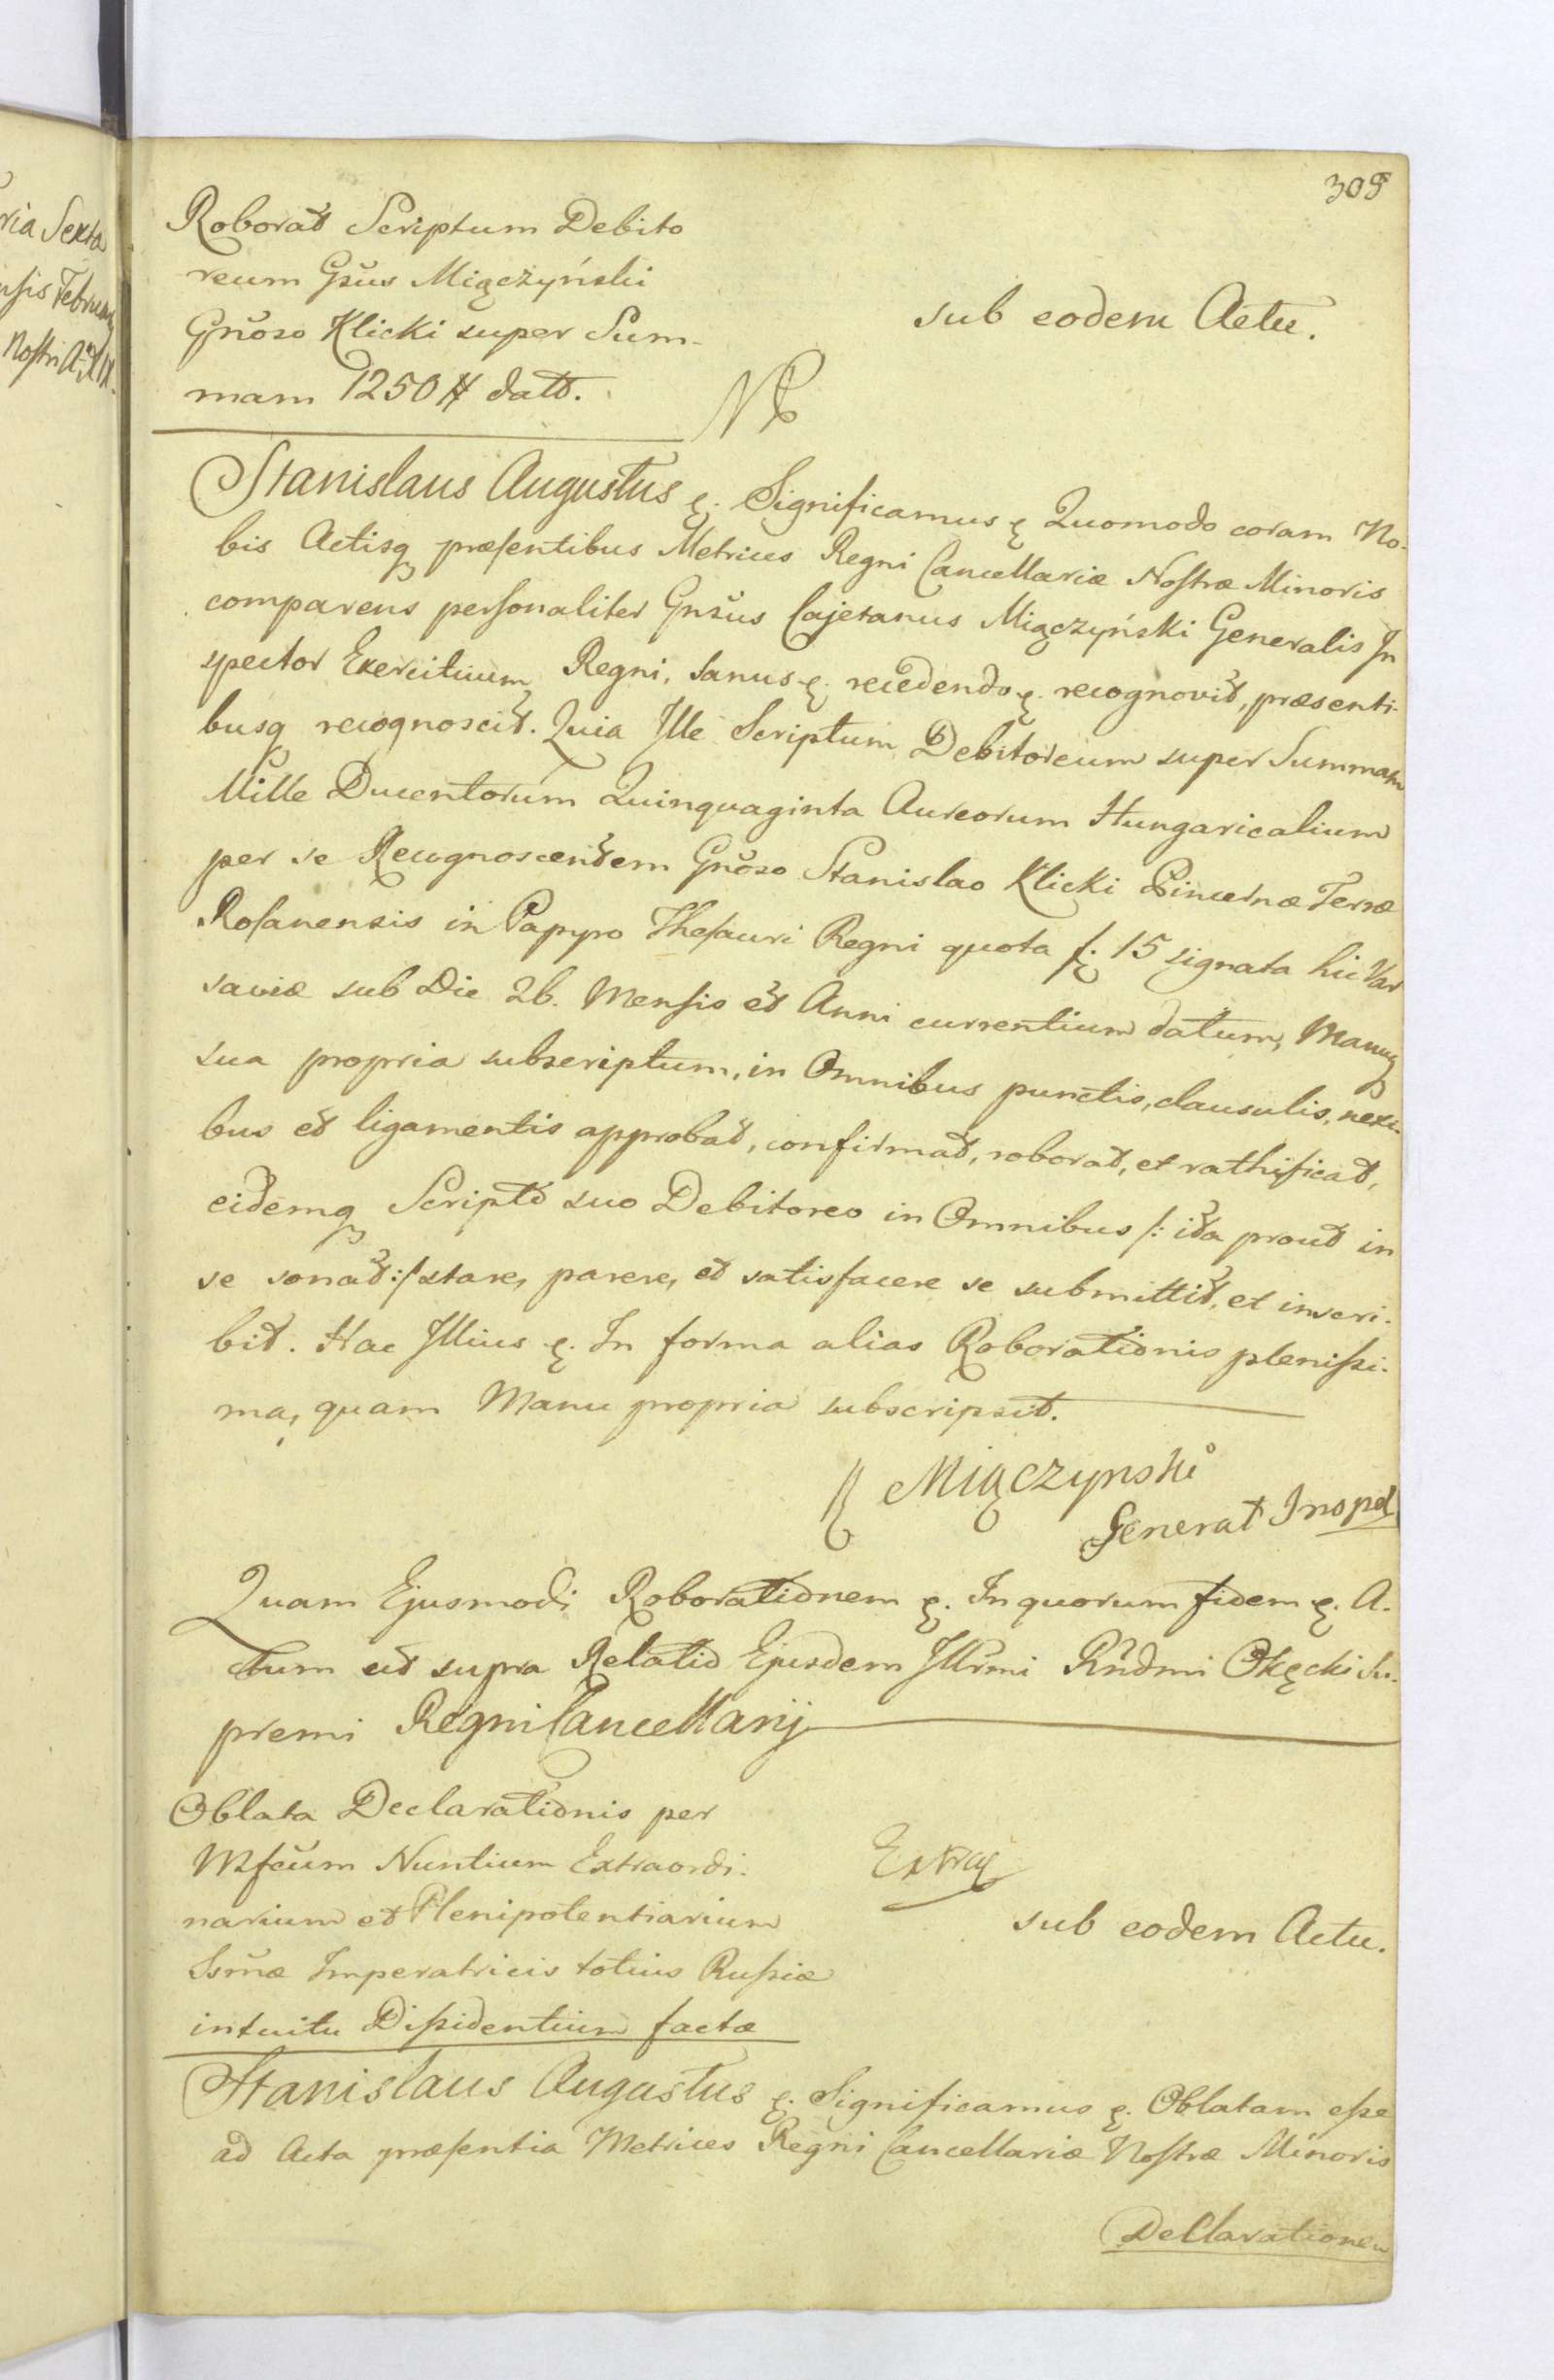 309
ria Sexta
nsis Februarij
Nostri A.
Roborat Scriptum Debito
reum Gsus Miączyński
Gnoso Klicki super Sum-
mam 1250 # datt.
sub eodem Actu.
Stanislaus Augustus ę. Significamus ę Quomodo coram No-
bis Actisq præsentibus Metrices Regni Cancellariæ Nostræ Minoris
comparens personaliter Gnsus Cajetanus Miączyński Generalis In
spector Exercituum Regni, sanus ę. recedendo ę. recognovit, præsenti-
busq recognoscit. Quia Ille Scriptum Debitoreum super Summam
Mille Ducentorum Quinquaginta Aureorum Hungaricalium
per se Recognoscentem Gnoso Stanislao Klicki Pincernæ Terræ
Rosanensis in Papyro Thesauri Regni quota f. 15 signata hic Var
saviæ sub Die 26. Mensis et Anni currentium datum, Manuq
sua propria subscriptum, in Omnibus punctis, clausulis, nexi-
bus et ligamentis approbat, confirmat, roborat, et rathificat,
eidemq Scripto suo Debitoreo in Omnibus /: ita prout in
se sonat :/ stare, parere, et satisfacere se submittit, et inscri-
bit. Hac Illius ę. In forma alias Roborationis plenissi-
ma, quam Manu propria subscripsit.
Miączynski
Generał Insp
Quam Ejusmodi Roborationem ę. In quorum fidem ę. A-
ctum ut supra Relatio Ejusdem Illrmi Rndmi Okęcki Su-
premi Regni Cancellarij
Oblata Declarationis per
Mfcum Nuntium Extraordi-
narium et Plenipotentiarium
Ssmæ Imperatricis totius Russiæ
intuitu Dissidentium factæ
Extrą
sub eodem Actu.
Stanislaus Augustus ę. Significamus ę. Oblatam esse
ad Acta præsentia Metrices Regni Cancellariæ Nostræ Minoris
Declarationem